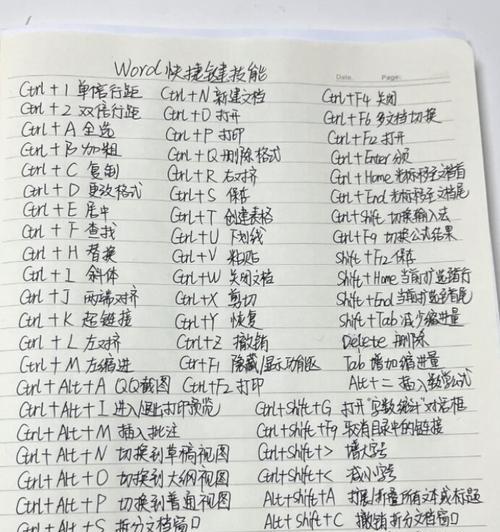 Word快捷键技能
Date. Page.
Ctrl+1 单倍行距 Ctrl+N 新建文档 Ctrl+F4 关闭
Ctrl+2 双倍行距 Ctrl+O 打开 Ctrl+F6 多文档切换
Ctrl+A 全选 Ctrl+P 打印 Ctrl+F12 打开
Ctrl+B 加粗 Ctrl+Q 删除格式 Ctrl+Enter 分页
Ctrl+C 复制 Ctrl+R 右对齐 Ctrl+Home 光标移至文档首
Ctrl+D 更改格式 Ctrl+S 保存 Ctrl+End 光标移至文档尾
Ctrl+E 居中 Ctrl+T 创建表格 Ctrl+Shift 切换输入法
Ctrl+F 查找 Ctrl+U 下划线 Ctrl+F9 切换公式结果
Ctrl+H 替换 Ctrl+V 粘贴 Shift+F12 保存
Ctrl+I 斜体 Ctrl+W 关闭文档 Shift+Home 当前扩选至行
Ctrl+J 两端对齐 Ctrl+X 剪切 Shift+End 当前扩选至尾
Ctrl+K 超链接 Ctrl+Y 恢复 Shift+Tab 减少缩进量
Ctrl+L 左对齐 Ctrl+Z 撤销 Delete 删除
Ctrl+M 左缩进 Ctrl+F1 隐藏/显示功能区 Tab 增加缩进量
Ctrl+Alt+A QQ截图 Ctrl+F2 打印 Alt+= 插入数学公式
Ctrl+Alt+I 进入/退出打印预览 Ctrl+Shift+G 打开“字数统计”对话框
Ctrl+Alt+M 插入批注 Ctrl+Shift+F9 取消目录中的链接
Ctrl+Alt+N 切换到草稿视图 Ctrl+Shift+> 增大字号
Ctrl+Alt+O 切换到大纲视图 Ctrl+Shift+< 减小字号
Ctrl+Alt+P 切换到普通视图 Alt+Shift+A 扩展折叠所有文本或标题
Ctrl+Alt+S 拆分文档窗口 Alt+Shift+C 撤销拆分文档窗口